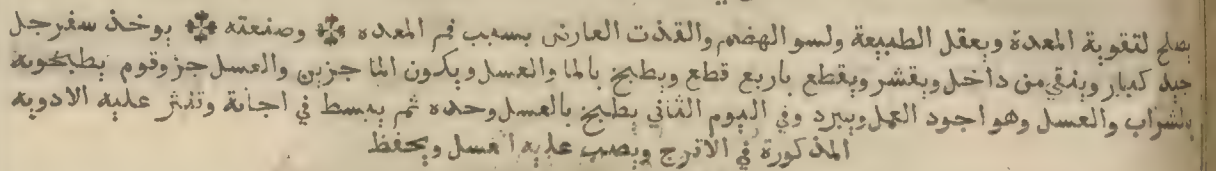 يصلح لتقوية المعدة ويعقل الطبيعة ولسو الهضم والقذف العارض بسبب فم المعده ۞ وصنعته ۞ يوخذ سفرجل
جيد كبار وينقي من داخل ويقشر ويقطع باربع قطع ويطبخ بالما والعسل ويكون الما جزين والعسل جز وقوم يطبخونه
بالشراب والعسل وهو اجود العمل ويبرد وفي اليوم الثاني يطبخ بالعسل وحده ثم يبسط في اجانة وتنثر عليه الادويه
المذكورة في الاترج ويصب عليه العسل ويحفظ